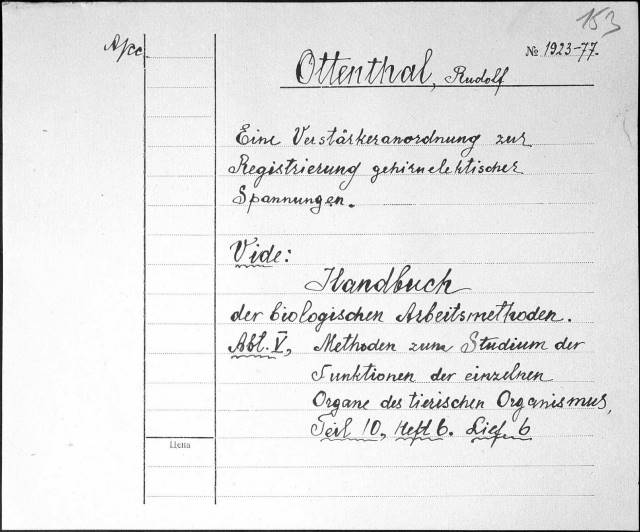 153
№ 1923-77.
Ottenthal, Rudolf
Eine Verstärkeranordnung zur
Registrierung gehirnelektischer
Spannungen.
Vide:
Handbuch
der biologischen Arbeitsmethoden.
Abt. V, Methoden zum Studium der
Funktionen der einzelnen
Organe des tierischen Organismus,
Teil 10, Heft 6. Lief. 6
Цена